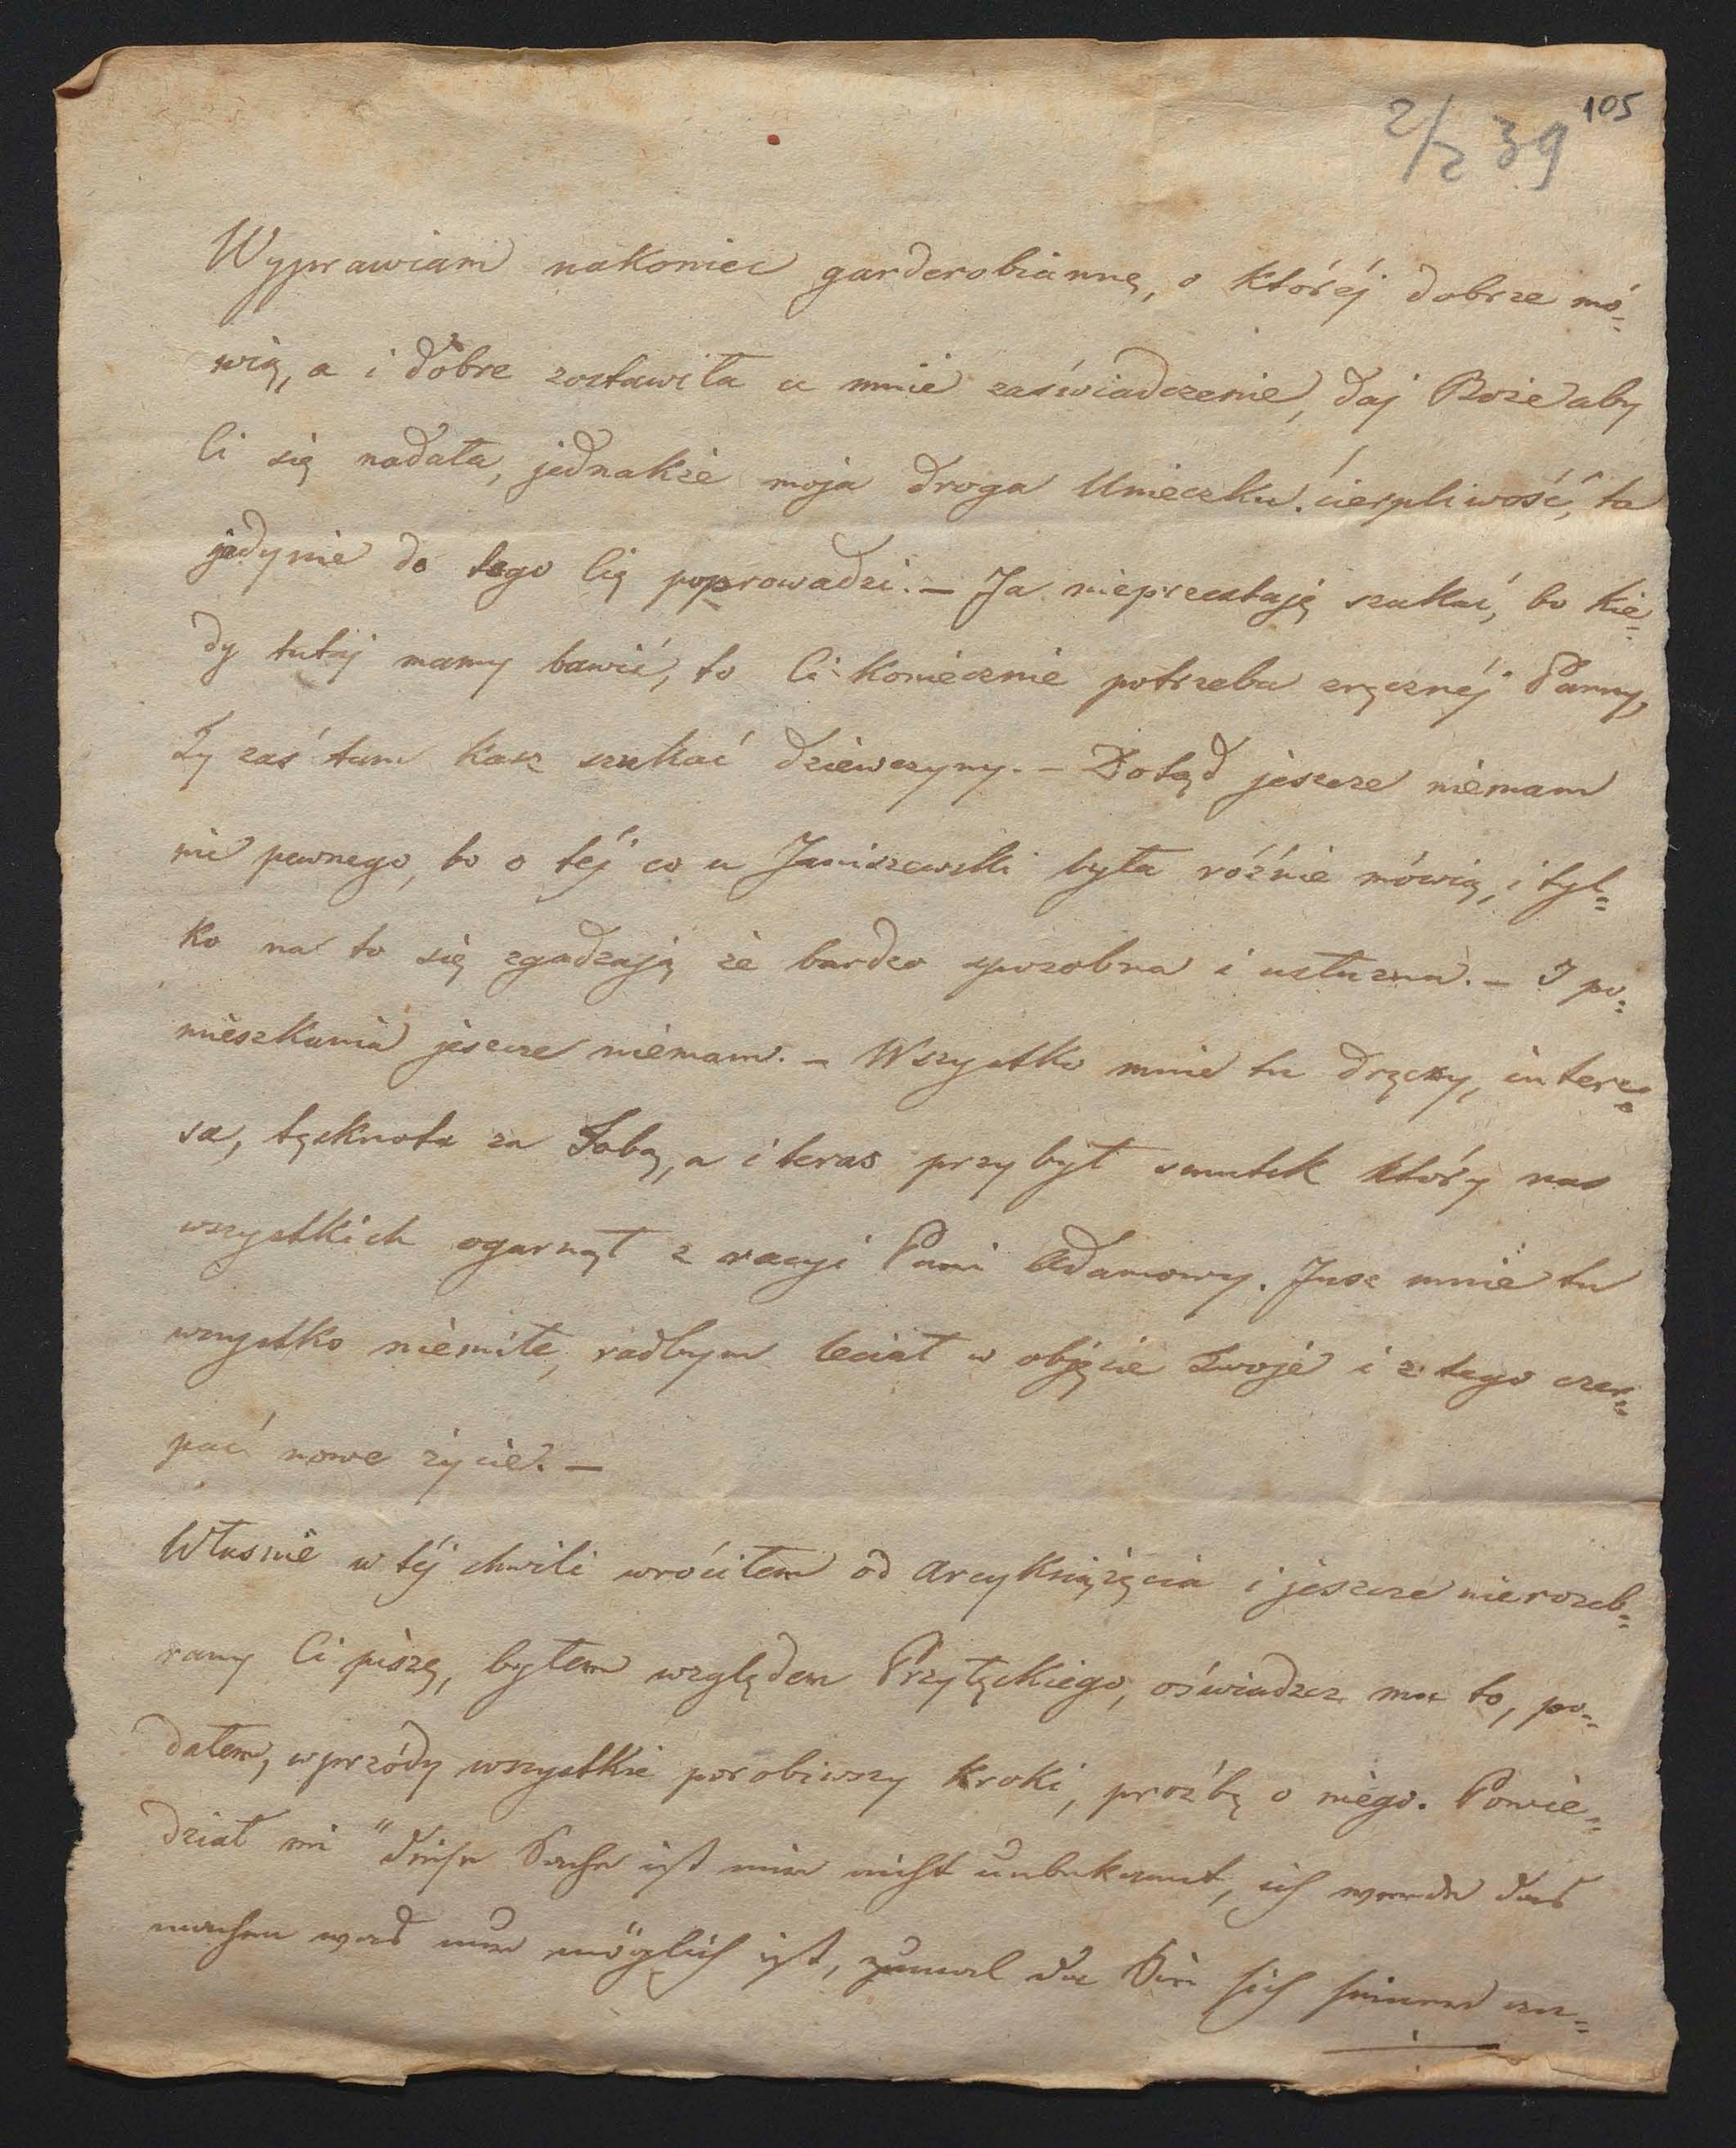 105
2/2 39
Wyprawiam nakoniec garderobiannę, o któréj dobrze mó=
wią, a i dobre zostawiła u mnie zaświadczenie, daj Boże aby
Ci się nadała, jednakże moja droga cierpliwość, ta
jedynie do tego Cię poprowadzi. – Ja nieprzestaję szukać, bo kie=
dy tutaj mamy bawić, to Ci koniecznie potrzeba zręcznéj Panny,
Ty zaś tam każ szukać dziewczyny. – Dotąd jeszcze niemam
nic pewnego, bo o téj co u Janiszewski była różnie mówią, i tyl=
ko na to się zgadzają że bardzo sposobna i usłużna. – I po=
mieszkania jeszcze niemam. – Wszystko mnie tu dręczy, intere=
sa, tęsknota za Tobą, a i teras przybył smutek który nas
wszystkich ogarnął z racyi Pani Adamowy. Jusz mnie tu
wszystko niemiłe, radbym leciał w objęcie Twoje i z tego czer=
pać nowe życie. –
Własnie w téj chwili wróciłem od Arcyksiążęcia i jeszcze nierozeb=
rany Ci piszę, byłem względem Przyłęckiego, oświadcz mu to, po=
dałem, wprzódy wszystkie porobiwszy kroki, proźbę o niego. Powie=
dział mi "diese Sache ist mir nicht unbekannt, ich werde das
machen was nur möglich ist, zumal da Sie sich seiner an=